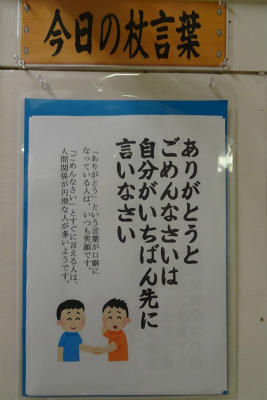 今日の杖言葉
ありがとうと
ごめんなさいは
自分がいちばん先に
言いなさい
「ありがとう」という言葉が口癖に
なっている人は、いつも笑顔です。
「ごめんなさい」とすぐに言える人は、
人間関係が円滑な人が多いようです。